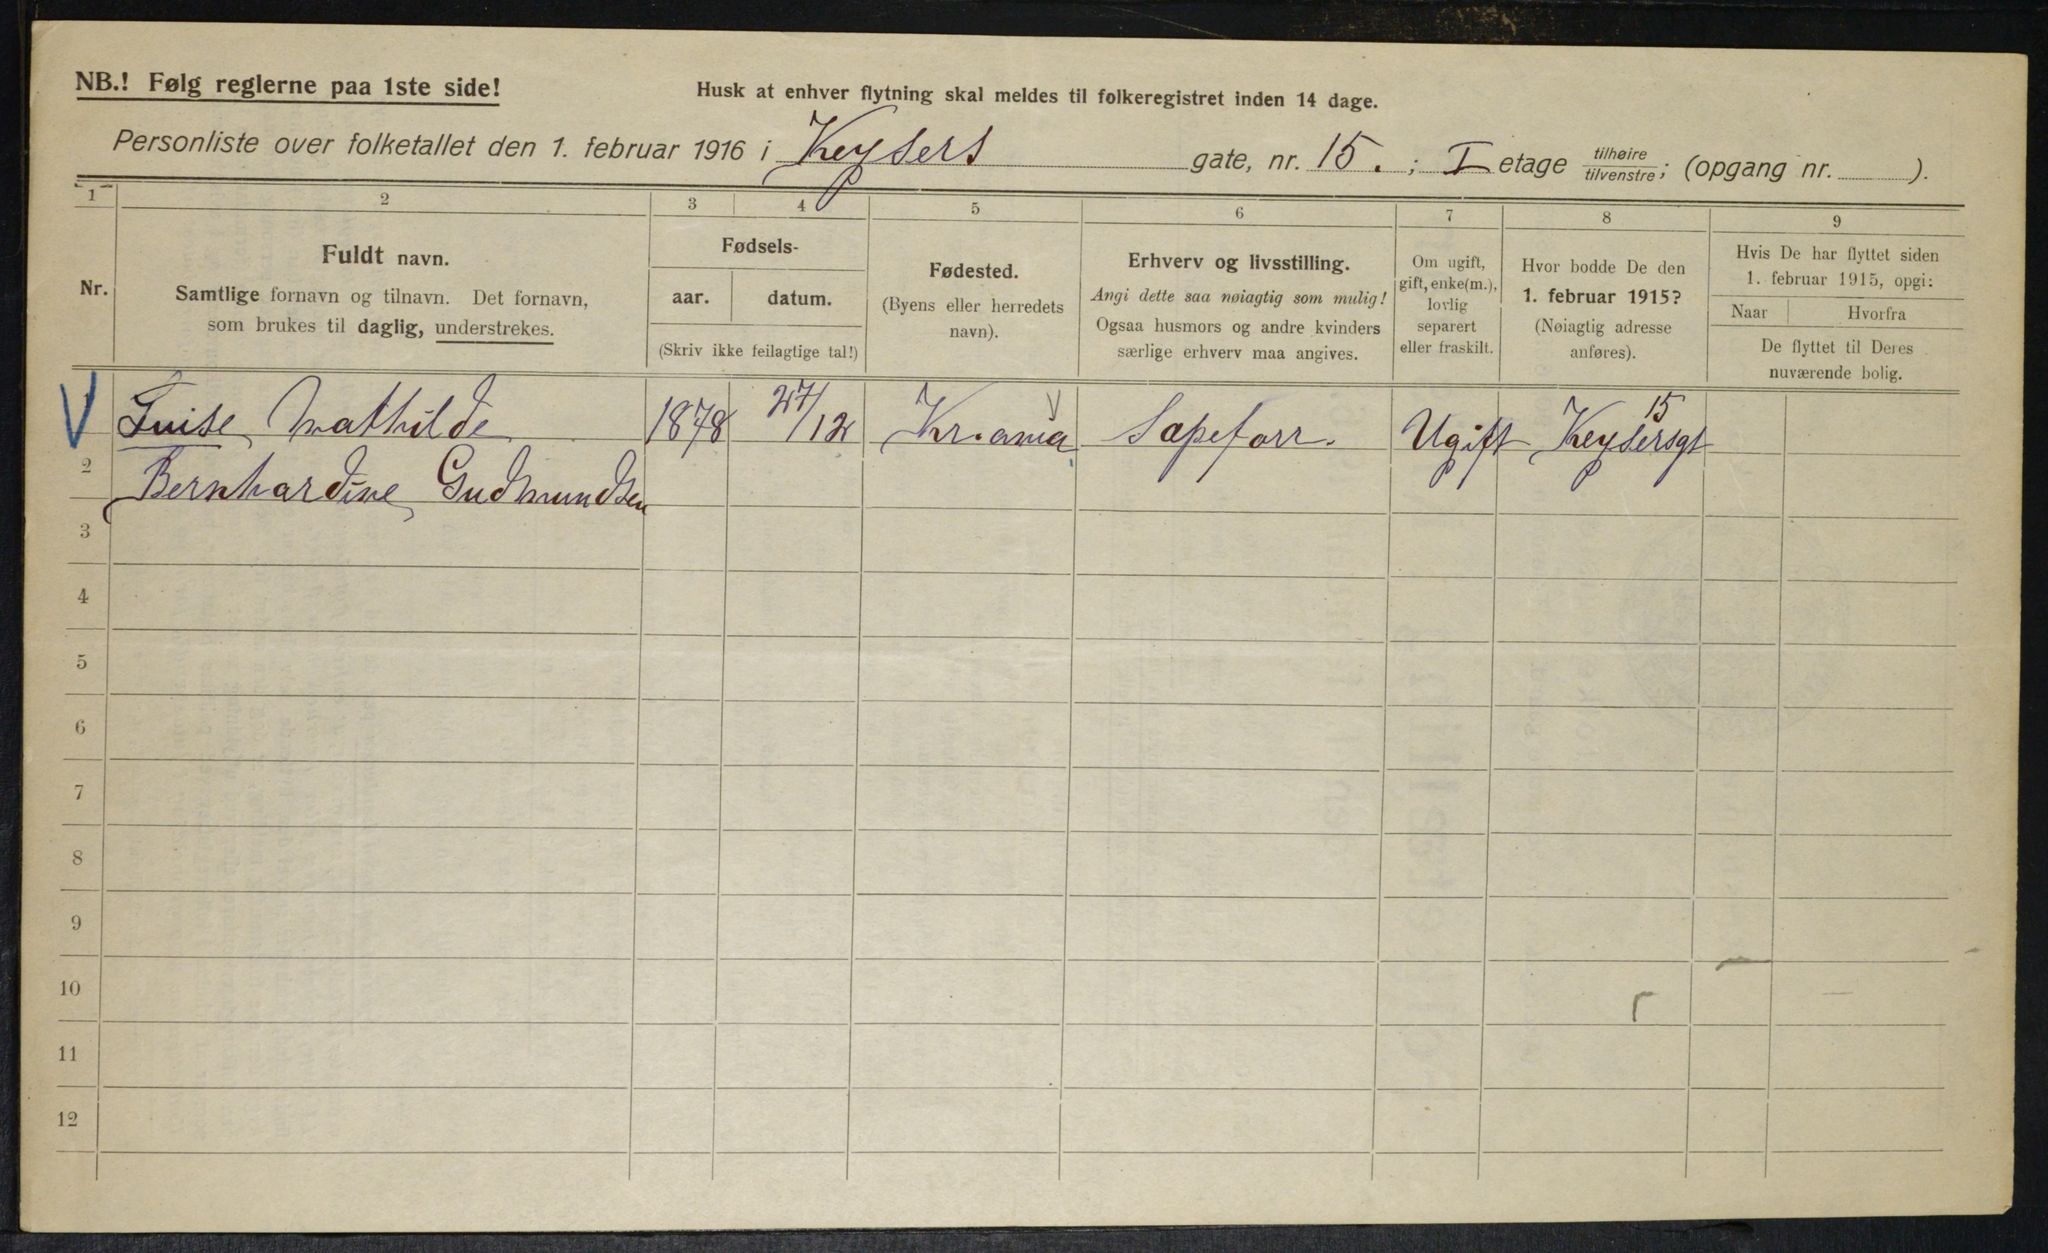 NB.! Følg reglerne paa 1ste side!
Husk at enhver flytning skal meldes til folkeregistret inden 14 dage.
Personliste over folketallet den 1. februar 1916 i Keysers gate, nr. 15. ; I etage tilhøire/tilvenstre; (opgang nr. ).
1 2 3 4 5 6 7 8 9
Nr.
Fuldt navn.
Samtlige fornavn og tilnavn. Det fornavn,
som brukes til daglig, understrekes.
Fødsels-
aar. datum.
(Skriv ikke feilagtige tal!)
Fødested.
(Byens eller herredets
navn).
Erhverv og livsstilling.
Angi dette saa nøiagtig som mulig!
Ogsaa husmors og andre kvinders
særlige erhverv maa angives.
Om ugift,
gift, enke(m.),
lovlig
separert
eller fraskilt.
Hvor bodde De den
1. februar 1915?
(Nøiagtig adresse
anføres).
Hvis De har flyttet siden
1. februar 1915, opgi:
Naar Hvorfra
De flyttet til Deres
nuværende bolig.
1 Luise Mathilde 1878 27/12 Kr.ania Sapeforr. Ugift Keysersgt 15
2 Bernhardine Gudmundsen
3
4
5
6
7
8
9
10
11
12